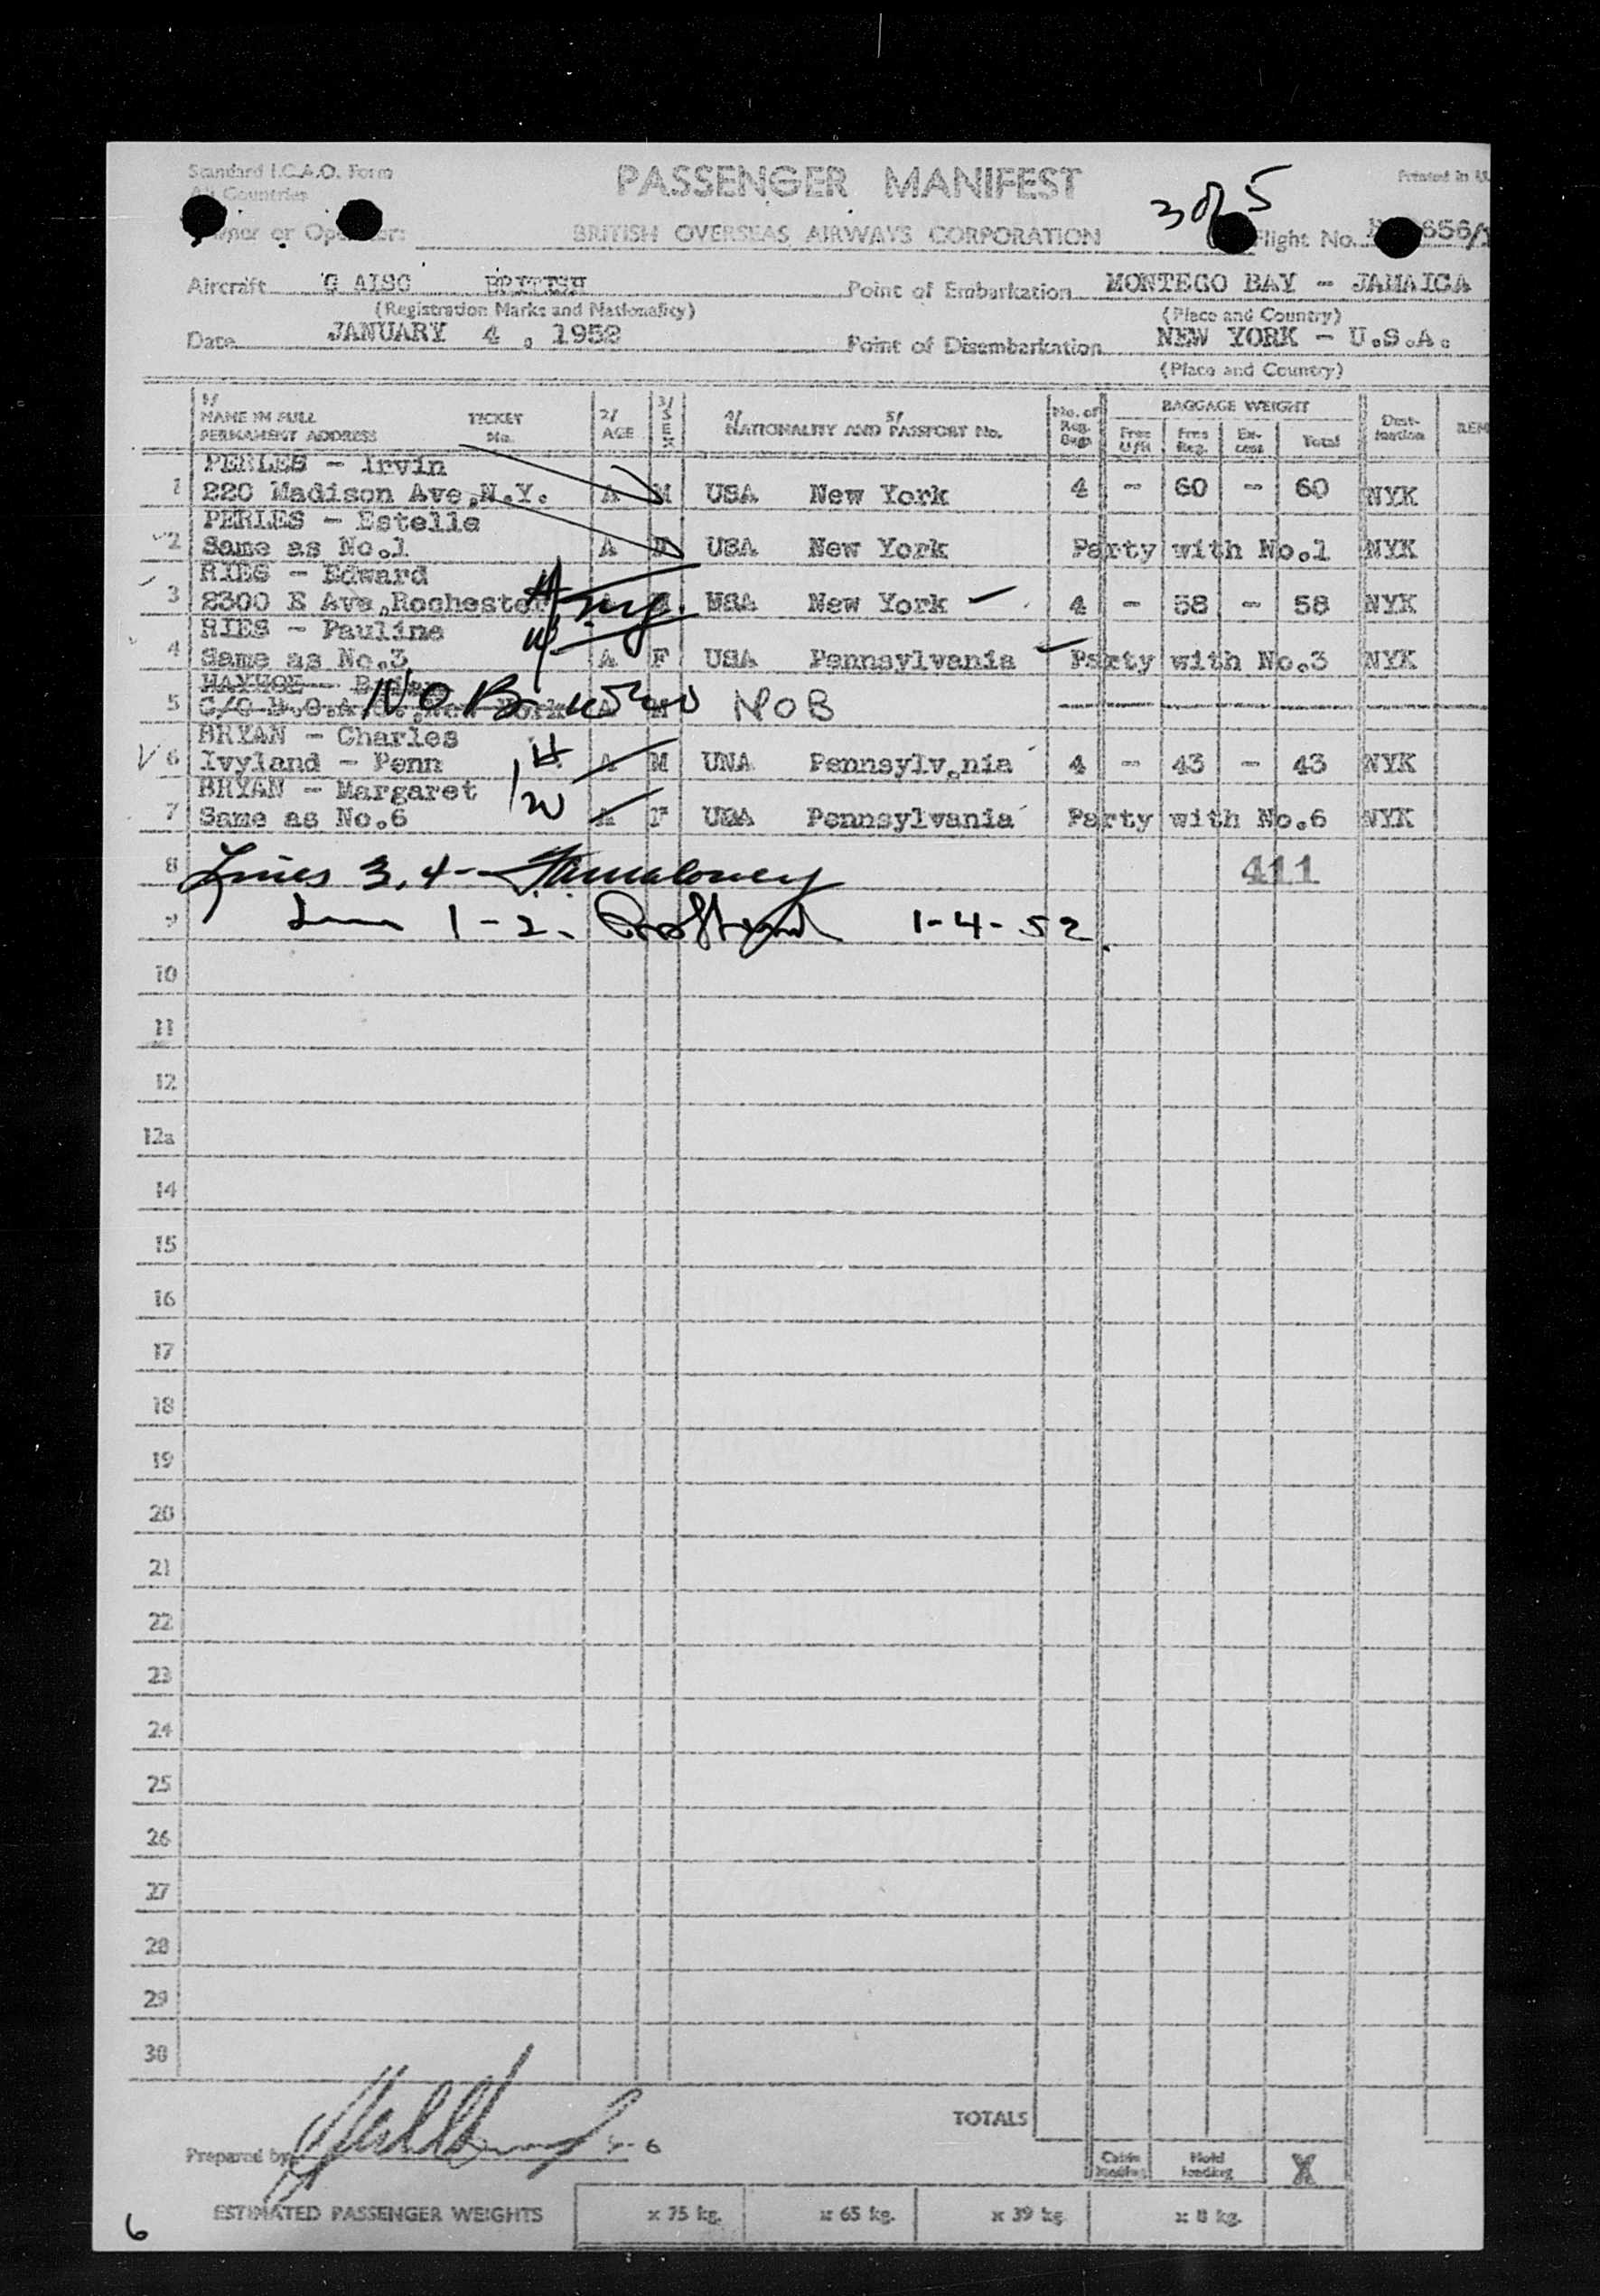 Standard I.C.A.O. Form
All Countries
PASSENGER MANIFEST
3 of 5
Printed in U.
Owner or Operator:
BRITISH OVERSEAS AIRWAYS CORPORATION
Flight No. 656/
Aircraft G AISC BRITISH
Point of Embarkation MONTEGO BAY - JAMAICA
(Registration Marks and Nationality)
(Place and Country)
Date JANUARY 4 , 1952
Point of Disembarkation NEW YORK - U.S.A.
(Place and Country)
1/ NAME IN FULL PERMANENT ADDRESS TICKET No. 2/ AGE 3/ SEX 4/ 5/ NATIONALITY AND PASSPORT No. No. of Reg. Bags BAGGAGE WEIGHT Free U/H Free Reg. Ex-cess Total Dest-ination REM
PERLES - Irvin
1 220 Madison Ave,N.Y. A M USA New York 4 - 60 - 60 NYK
PERLES - Estelle
2 Same as No.1 A USA New York Party with No.1 NYK
RIES - Edward
3 2300 E Ave,Rochester A New York 4 - 58 - 58 NYK
RIES - Pauline
4 Same as No.3 A F USA Pennsylvania Party with No.3 NYK
5 C/O B.O.A.C. New York A M NOB
NO B
BRYAN - Charles
6 Ivyland - Penn H A M UNA Pennsylv,nia 4 - 43 - 43 NYK
BRYAN - Margaret
7 Same as No.6 W A F USA Pennsylvania Party with No.6 NYK
8 Lines 3,4- 411
9 Line 1-2. 1-4-52.
10
11
12
12a
14
15
16
17
18
19
20
21
22
23
24
25
26
27
28
29
30
TOTALS
Prepared by
Cabin loading Hold loading X
ESTIMATED PASSENGER WEIGHTS x 75 kg. x 65 kg. x 39 kg x 8 kg.
6